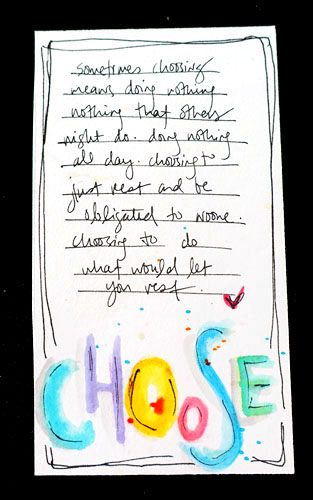 sometimes choosing
means doing nothing
nothing that others
might do. doing nothing
all day. choosing to
just rest and be
obligated to noone.
choosing to do
what would let
you rest.
CHOOSE